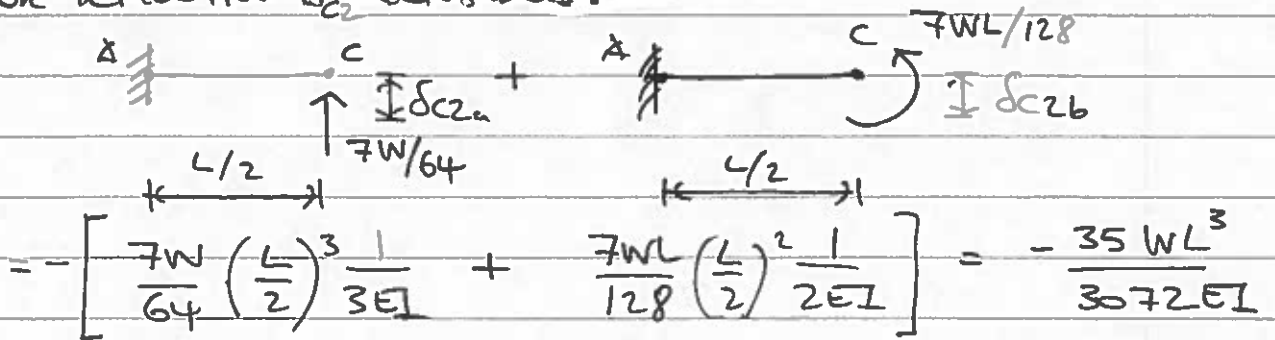 δc2
A C + A C 7WL/128
δc2a δc2b
7W/64
L/2 L/2
= -[ 7W/64 (L/2)^3 1/3EI + 7WL/128 (L/2)^2 1/2EI ] = - 35WL^3/3072EI